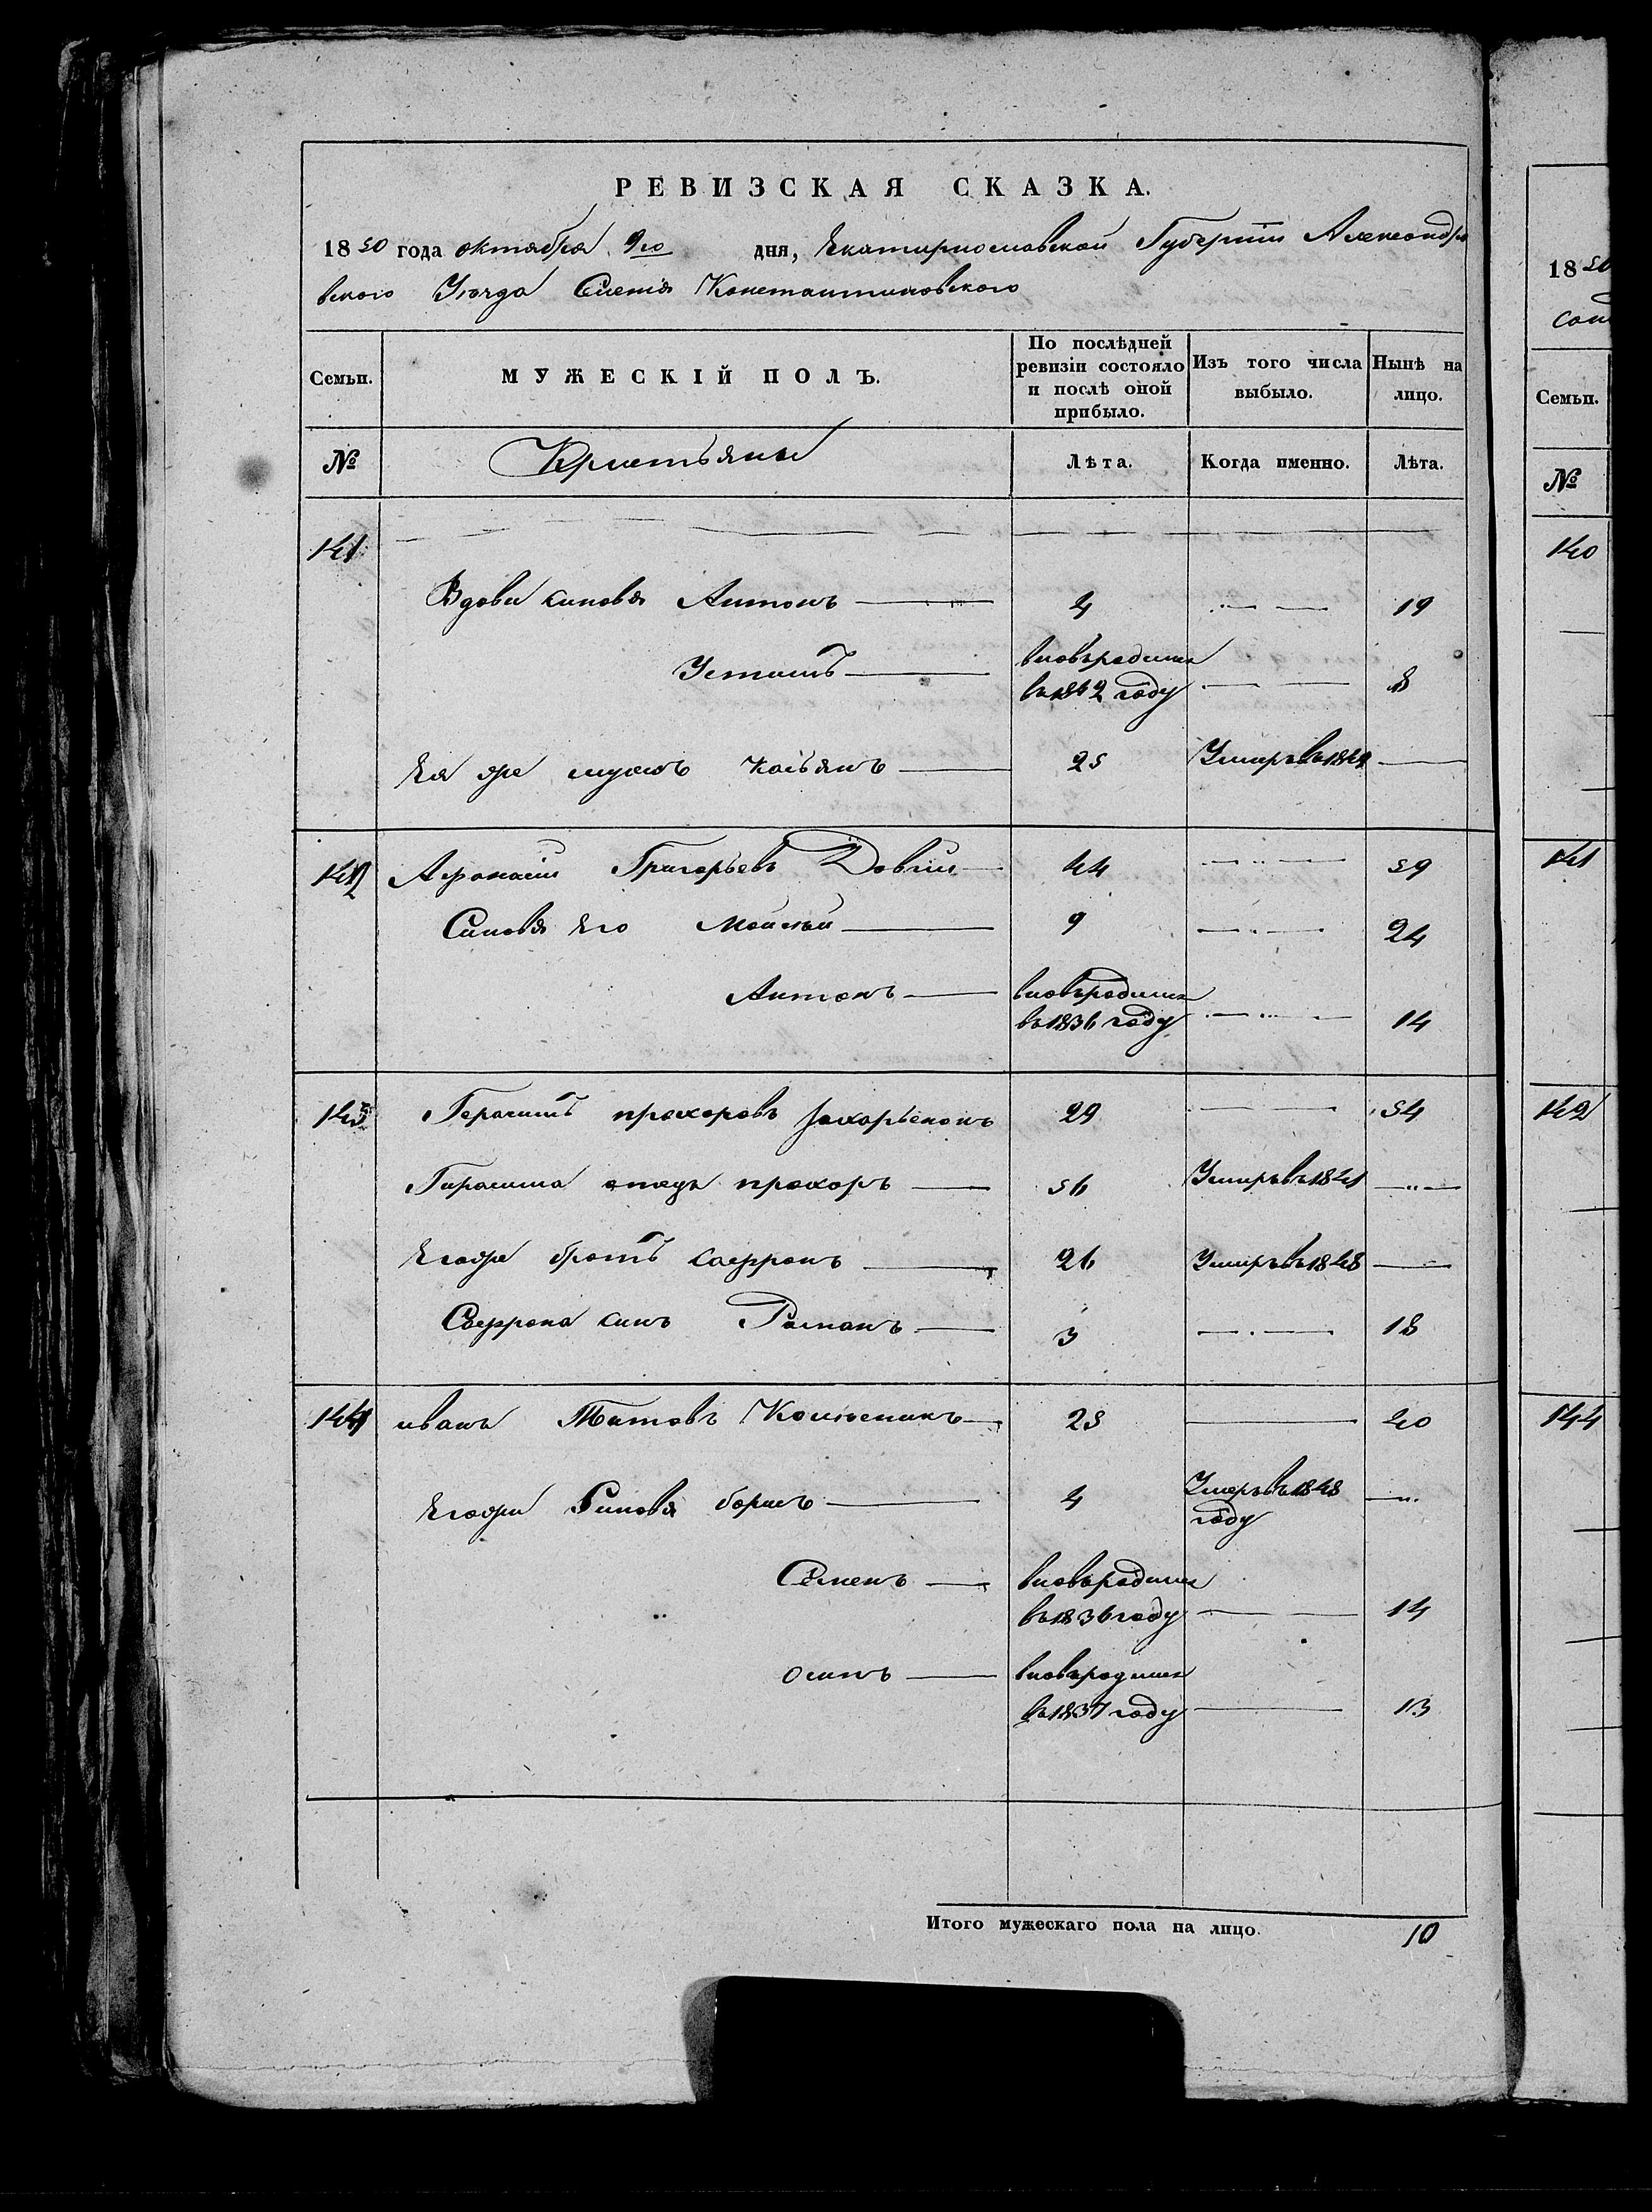 РЕВИЗСКАЯ СКАЗКА.
1850 года октября 9го дня, Екатиринославской Губернии Александро
вского Уезда Силения Константиновского
Семьи. МУЖЕСКІЙ ПОЛЪ. По послѣдней ревизіи состояло и послѣ оной прибыло. Изъ того числа выбыло. Нынѣ на лицо.
№ Кристьяны Лѣта. Когда именно. Лѣта.
141
Вдови синовя Антонъ 4 19
Устимъ вновьродился
въ 1842 году 8
Ея же мужъ Касьянъ 25 Умиръ въ 1849
142 Афонасий Григорьевъ Довгии 44 59
Синовя его Мойсей 9 24
Антонъ вновьродился
въ 1836 году 14
143 Герасимъ прохоровъ Захарьенонъ 29 54
Гирасима отецъ прохоръ 56 Умиръ въ 1841
Егоже братъ Сафронъ 26 Умиръ въ 1848
Сафрона синъ Романъ 3 18
144 иванъ Титовъ 25 40
Егожи Синовя борисъ 4 Умеръ въ 1848
году
Семенъ вновьродился
въ 1836 году 14
осипъ вновьродился
въ 1837 году 13
Итого мужескаго пола на лицо. 10
1850
Семьи.
№
140
141
142
144